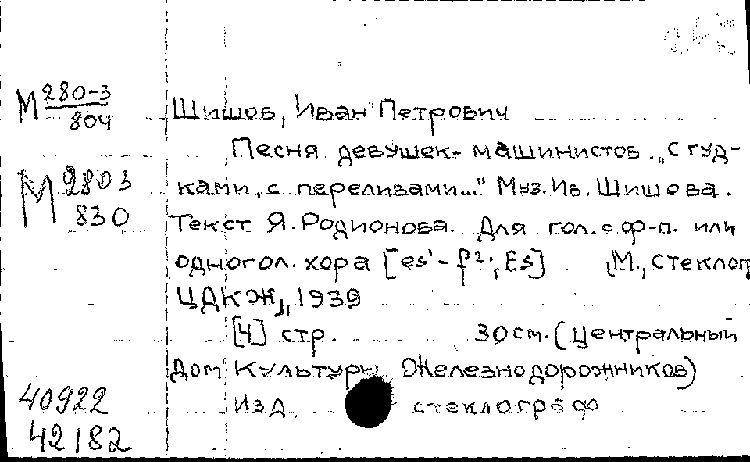 М 280-3
804
Шишов, Иван Петрович
Песня девушек-машинистов. „С гуд-
М 2803
830
ками, с переливами..." Муз. Ив. Шишова.
Текст Я. Родионова. Для гол. с ф-п. или
одногол. хора [es¹-f²; Es] [М., стеклогр
ЦДКЖ], 1939
[4] стр. 30 см. (Центральный
Дом Культуры Железнодорожников)
Изд. стеклограф
40922
42182